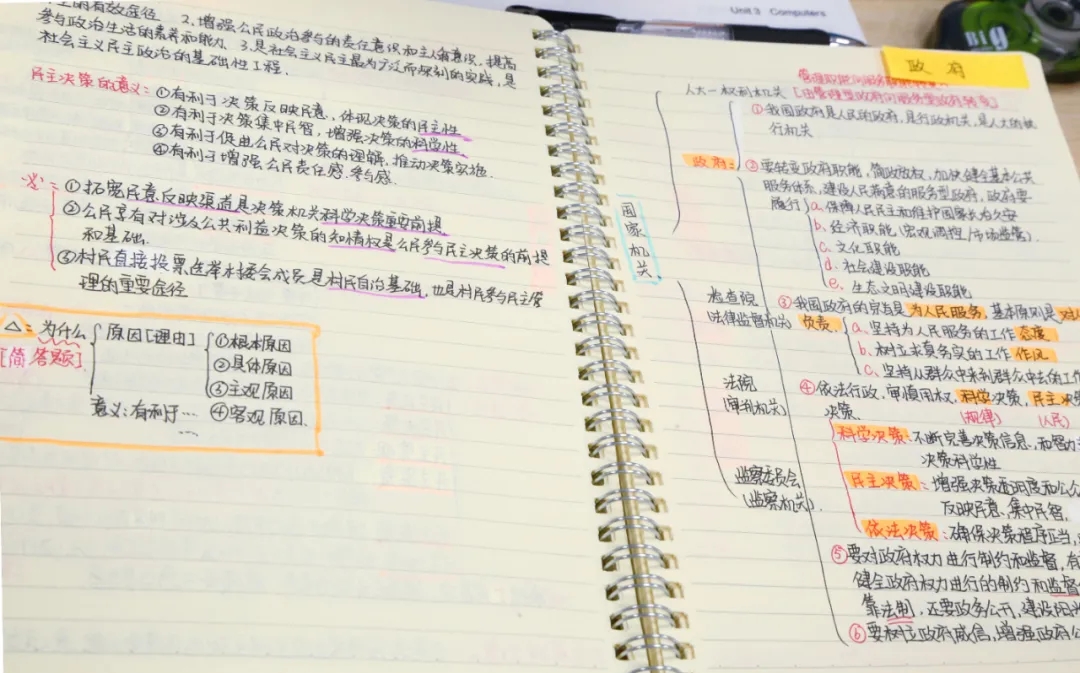 上的有效途径 2、增强公民政治参与的责任意识和主人翁意识,提高
参与政治生活的素养和能力 3.是社会主义民主最为广泛而深刻的实践,是
社会主义民主政治的基础性工程.
民主决策的意义:①有利于决策反映民意,体现决策的民主性
②有利于决策集中民智,增强决策的科学性.
③有利于促进公民对决策的理解,推动决策实施.
④有利于增强公民责任感.参与感.
①拓宽民意反映渠道是决策机关科学决策重要前提
②公民享有对涉及公共利益决策的知情权是公民参与民主决策的前提
和基础.
③村民直接投票选举村委会成员是村民自治基础,也是村民参与民主管
理的重要途径
△:为什么
[简答题]
原因[理由]
①根本原因
②具体原因
③主观原因
④客观原因.
意义:有利于…
…
Unit 3 Computers
政府
国家机关
人大-权利机关
[由管理型政府向服务型政府转变]
政府:
①我国政府是人民的政府,是行政机关,是人大的执
行机关
②要转变政府职能,简政放权,加快健全基本公共
服务体系,建设人民满意的服务型政府,政府要
履行
a.保障人民民主和维护国家长治久安
b.经济职能(宏观调控/市场监管).
c.文化职能
d.社会建设职能
e.生态文明建设职能
检查院
法律监督机关
③我国政府的宗旨是为人民服务,基本原则是对人
负责.
a.坚持为人民服务的工作态度
b.树立求真务实的工作作风
c.坚持从群众中来到群众中去的工作
法院
(审判机关)
④依法行政,审慎用权,科学决策,民主决策
决策.
(规律)
(人民)
科学决策:不断完善决策信息,和智力
决策科学性
监察委员会
(监察机关).
民主决策:增强决策透明度和公众
反映民意、集中民智,
依法决策:确保决策程序正当,
⑤要对政府权力进行制约和监督,有
健全政府权力进行的制约和监督
靠法制,还要政务公开,建设阳光
⑥要树立政府威信,增强政府公